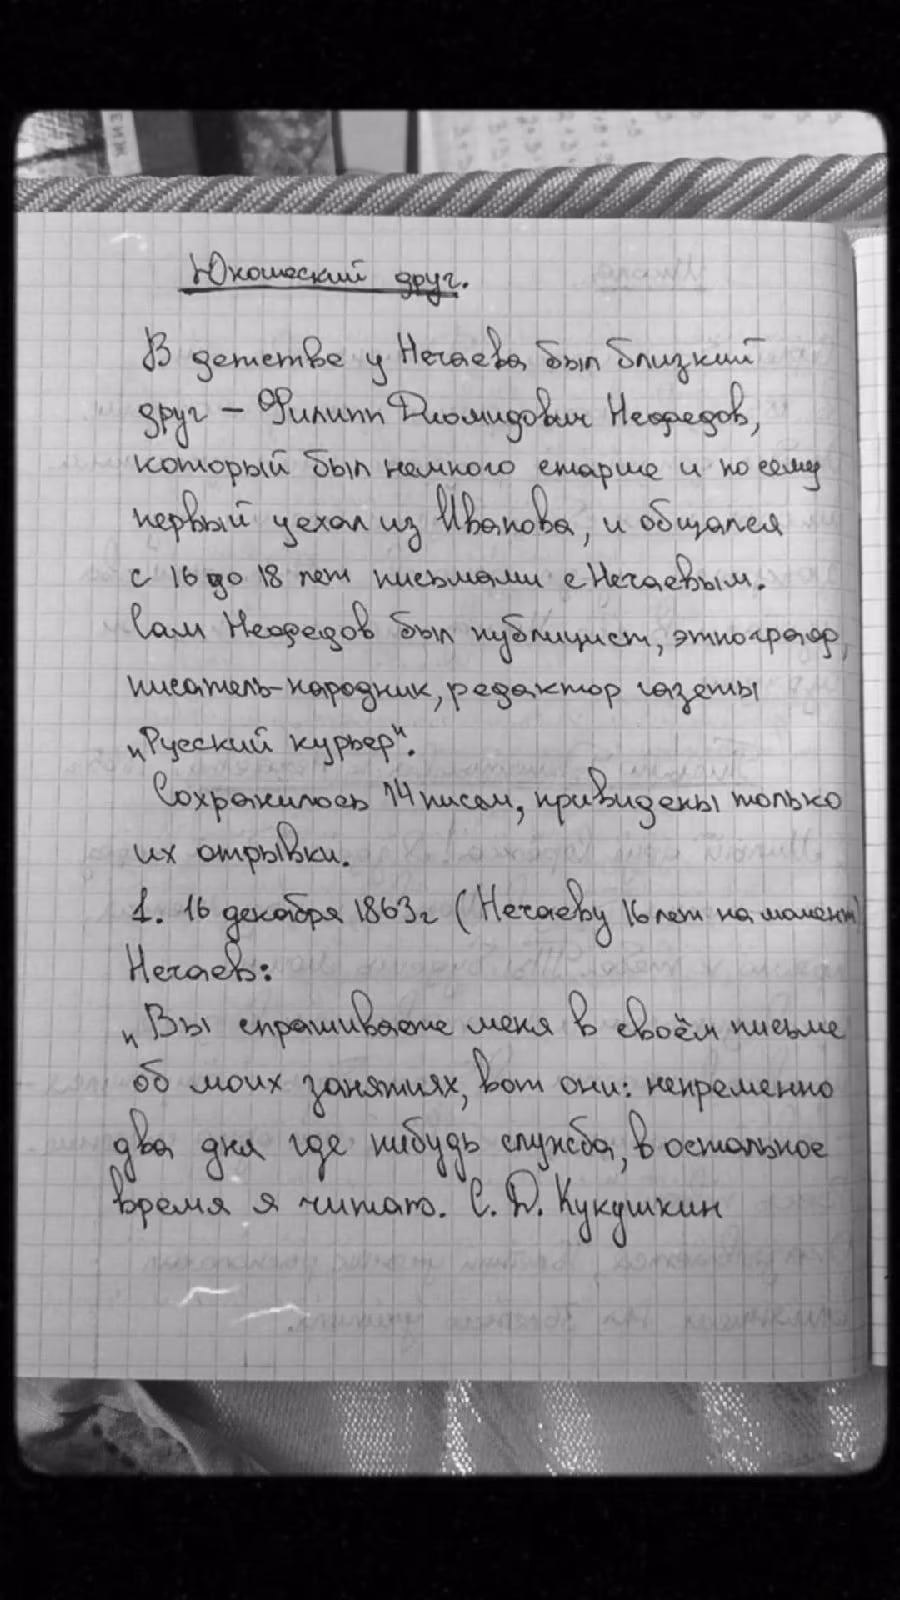 Юношеский друг.
В детстве у Нечаева был близкий
друг – Филипп Диомидович Нефедов,
который был немного старше и по сему
первый уехал из Иванова, и общался
с 16 до 18 лет письмами с Нечаевым.
Сам Нефедов был публицист, этнограф,
писатель-народник, редактор газеты
„Русский курьер".
Сохранилось 14 писем, привидены только
их отрывки.
1. 16 декабря 1863г (Нечаеву 16 лет на момент)
Нечаев:
„Вы спрашиваете меня в своём письме
об моих занятиях, вот они: непременно
два дня где нибудь служба, в остальное
время я читаю. С. Д. Кукушкин